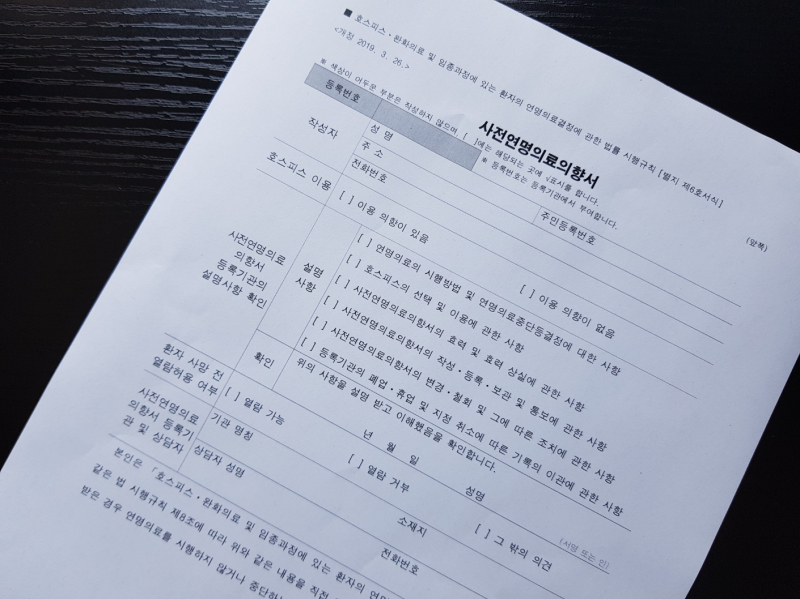 ■ 호스피스ㆍ완화의료 및 임종과정에 있는 환자의 연명의료결정에 관한 법률 시행규칙 [별지 제6호서식]
<개정 2019. 3. 26.>
사전연명의료의향서
(앞쪽)
※ 색상이 어두운 부분은 작성하지 않으며, [ ]에는 해당되는 곳에 √표시를 합니다.
등록번호
※ 등록번호는 등록기관에서 부여합니다.
작성자
성 명
주민등록번호
주 소
전화번호
호스피스 이용
[ ] 이용 의향이 있음
[ ] 이용 의향이 없음
사전연명의료
의향서
등록기관의
설명사항 확인
설명
사항
[ ] 연명의료의 시행방법 및 연명의료중단등결정에 대한 사항
[ ] 호스피스의 선택 및 이용에 관한 사항
[ ] 사전연명의료의향서의 효력 및 효력 상실에 관한 사항
[ ] 사전연명의료의향서의 작성ㆍ등록ㆍ보관 및 통보에 관한 사항
[ ] 사전연명의료의향서의 변경ㆍ철회 및 그에 따른 조치에 관한 사항
[ ] 등록기관의 폐업ㆍ휴업 및 지정 취소에 따른 기록의 이관에 관한 사항
확인
위의 사항을 설명 받고 이해했음을 확인합니다.
년 월 일 성명 (서명 또는 인)
환자 사망 전
열람허용 여부
[ ] 열람 가능
[ ] 열람 거부
[ ] 그 밖의 의견
사전연명의료
의향서 등록기
관 및 상담자
기관 명칭
소재지
상담자 성명
전화번호
본인은 「호스피스ㆍ완화의료 및 임종과정에 있는 환자의
같은 법 시행규칙 제8조에 따라 위와 같은 내용을 직접
받은 경우 연명의료를 시행하지 않거나